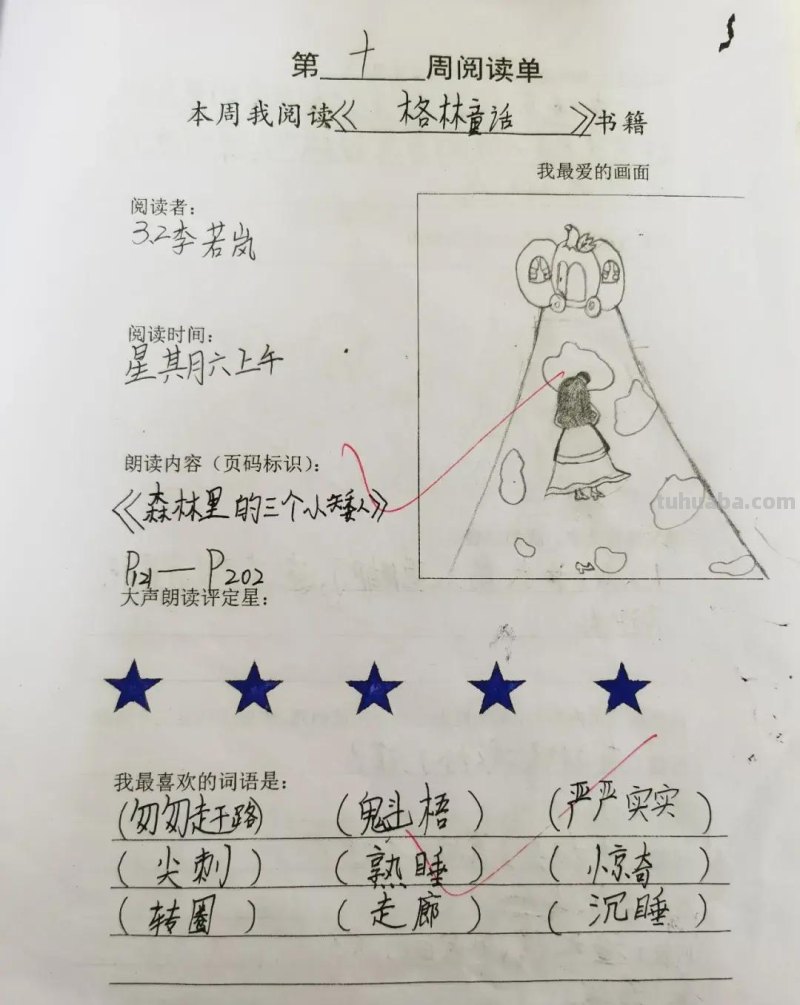 第十周阅读单
本周我阅读《格林童话》书籍
我最爱的画面
阅读者：
3.2李若岚
阅读时间：
星其月六上午
朗读内容（页码标识）：
《森林里的三个小矮人》
P121—P202
大声朗读评定星：
tuhuaba.com
我最喜欢的词语是：
（匆匆赶路）（魁梧）（严严实实）
（尖刺）（熟睡）（惊奇）
（转圈）（走廊）（沉睡）